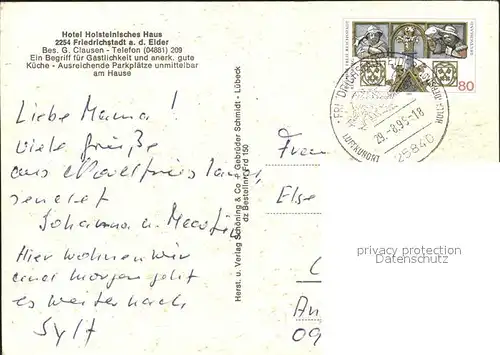 Hotel Holsteinisches Haus
2254 Friedrichstadt a. d. Eider
Bes. G. Clausen - Telefon (04881) 209
Ein Begriff für Gastlichkeit und anerk. gute
Küche - Ausreichende Parkplätze unmittelbar
am Hause
Liebe Mama!
viele Grüße
aus
sendet
Johanna u. Martin
Hier wohnen wir
und morgen geht
es weiter nach
Sylt
Herst. u. Verlag Schöning & Co + Gebrüder Schmidt - Lübeck
dz Bestellnr. Frd 150
80
29.-8.95-18
LUFTKURORT
25840
Frau
Else
An
09
privacy protection
Datenschutz